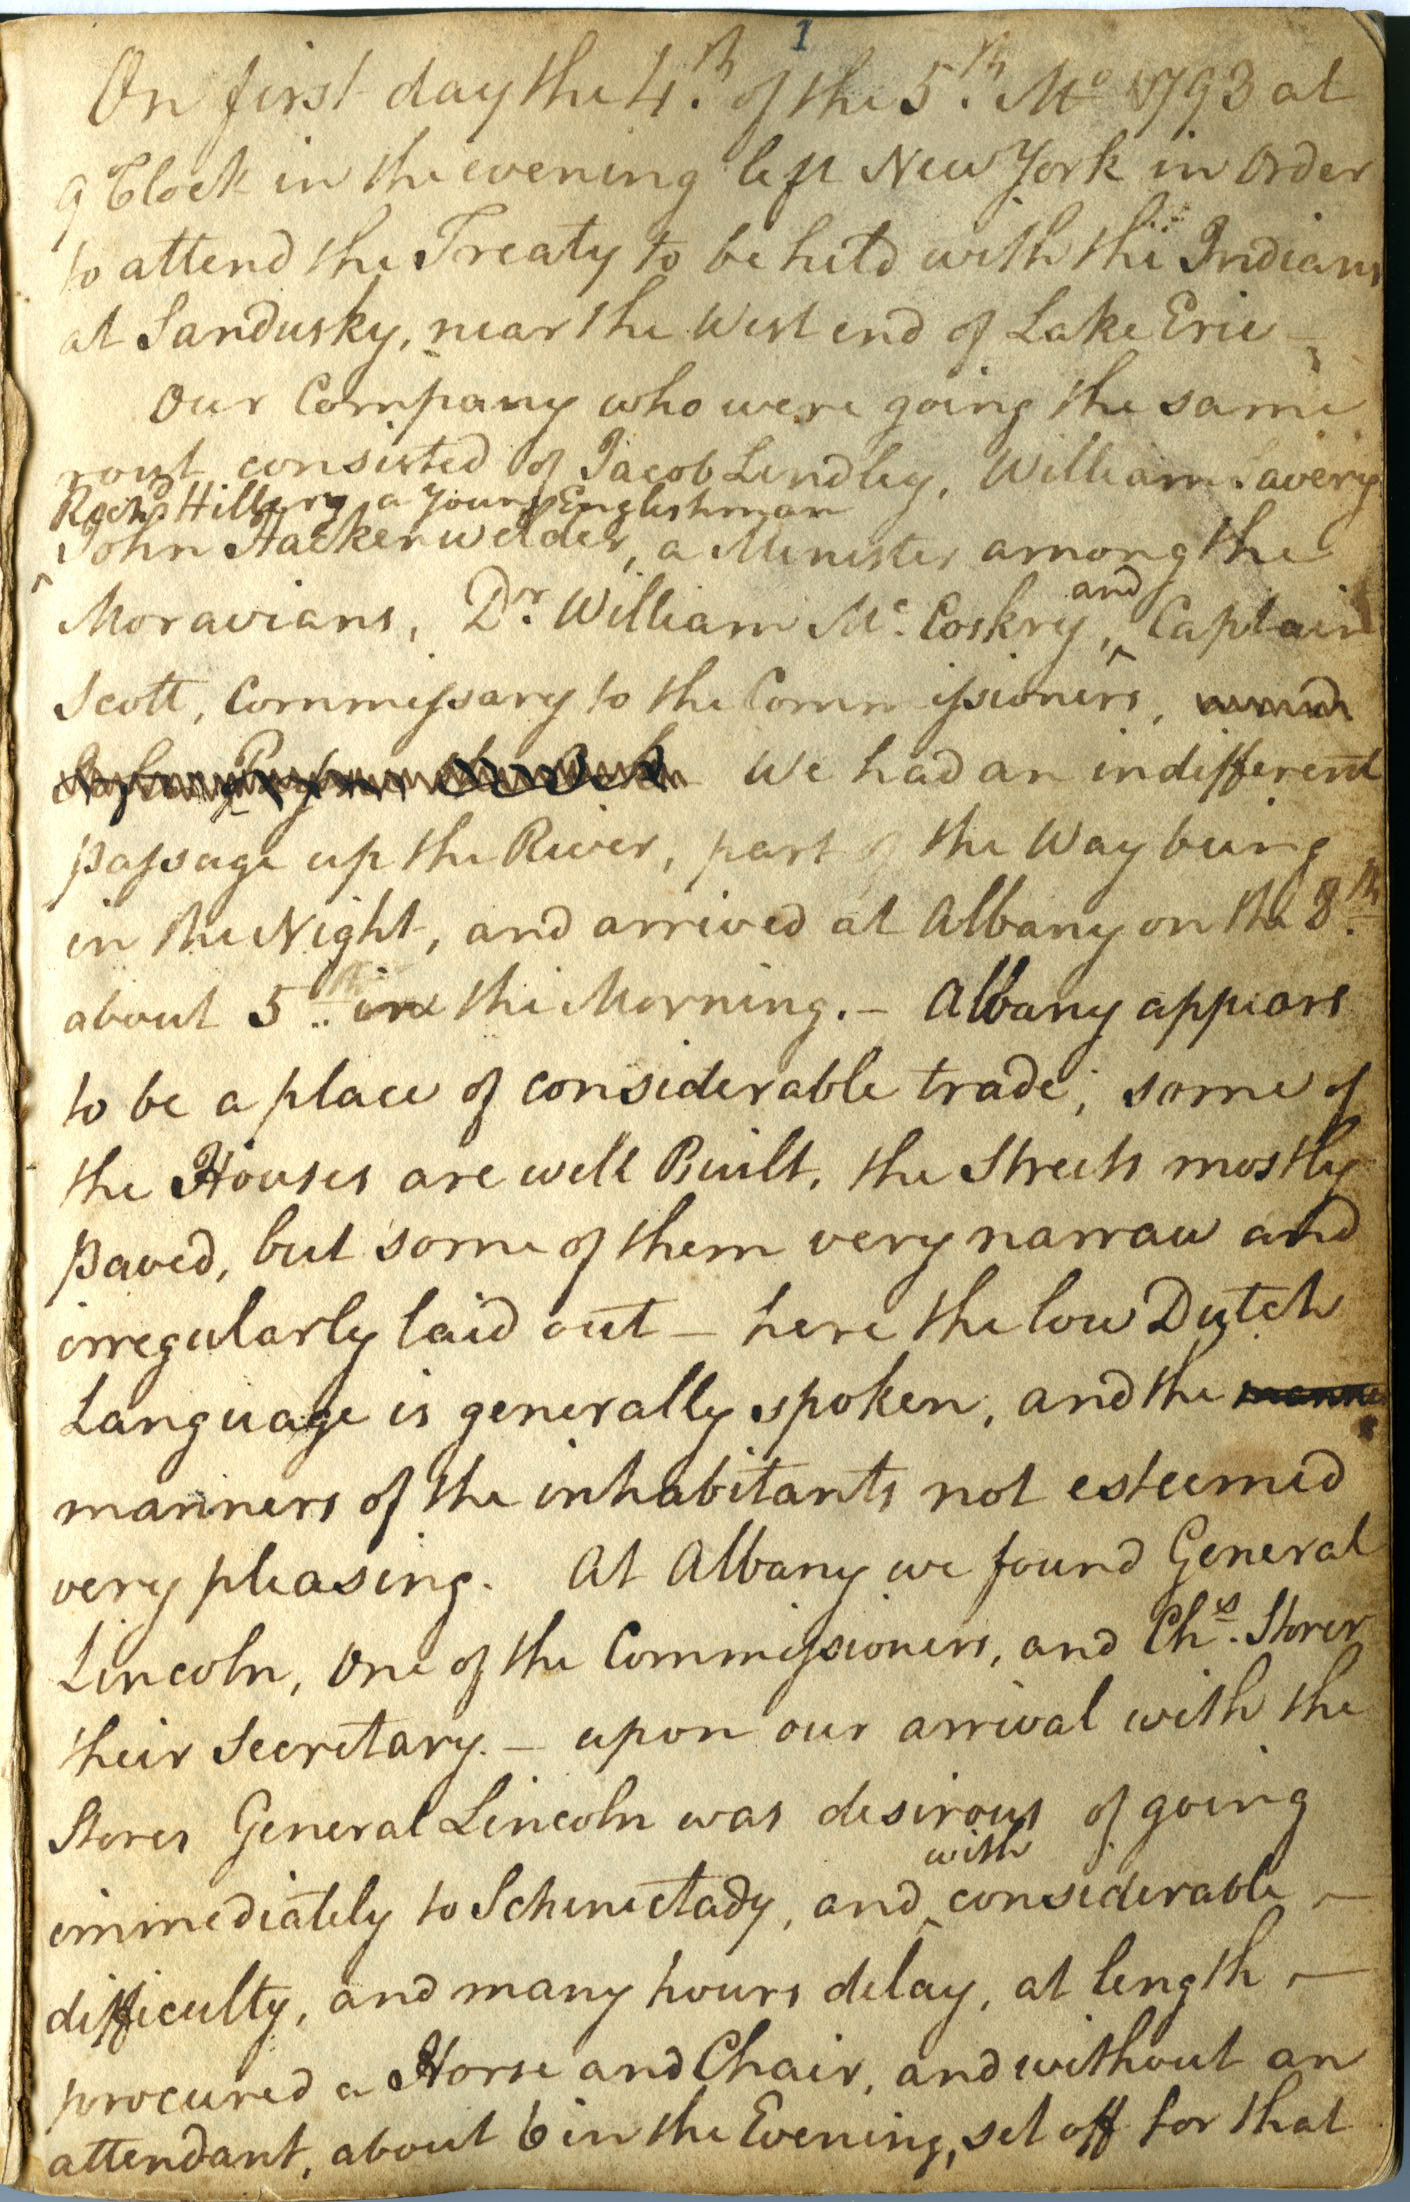 1
On first day the 4.th of the 5.th Mo 1793 at
9 Clock in the evening left New York in Order
to attend the Treaty to be held with the Indians
at Sandusky, near the West end of Lake Erie -
Our Company who were going the same
rout consisted of Jacob Lindley, William Savery
Richd. Hillery a Young Englishman
^ John Hackenwelder, a Minister among the
Moravians, Dr. William Mc. Coskry, ^ and Captain
Scott, Commissary to the Commissioners,
We had an indifferent
passage up the River, part of the Way being
in the Night, and arrived at Albany on the 8th.
about 5 in the Morning. - Albany appears
to be a place of considerable trade; some of
the Houses are well Built, the Streets mostly
paved, but some of them very narrow and
irregularly laid out - here the low Dutch
Language is generally spoken, and the manner
manners of the inhabitants not esteemed
very pleasing. At Albany we found General
Lincoln, One of the Commissioners, and Chs. Storer
their Secretary. - upon our arrival with the
Stores General Lincoln was desirous of going
immediately to Schenectady, and ^ with considerable -
difficulty, and many hours delay, at length -
procured a Horse and Chair, and without an
attendant, about 6 in the Evening, set off for that